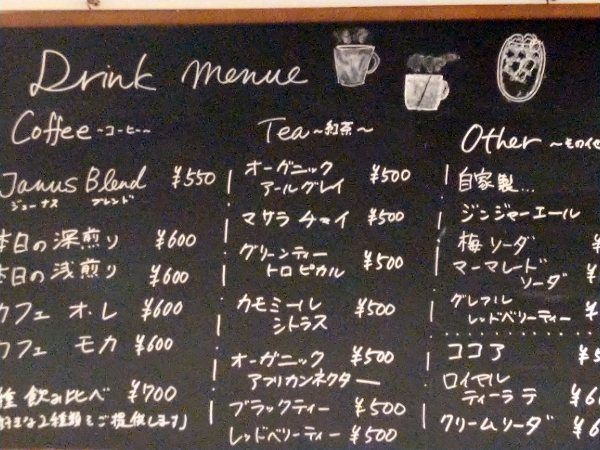 Drink menue
Coffee ~コーヒー~
Janus Blend ¥550
ジェーナス ブレンド
本日の深煎り ¥600
本日の浅煎り ¥600
カフェ オ・レ ¥600
カフェ モカ ¥600
種 飲み比べ ¥700
好きな2種類をご提供します」
Tea ~紅茶~
オーガニック
アールグレイ ¥500
マサラ チャイ ¥500
グリーンティー
トロピカル ¥500
カモミール
シトラス ¥500
オーガニック ¥500
アフリカンネクター
ブラックティー ¥500
レッドベリーティー ¥500
Other ~その
自家製...
ジンジャーエール
梅ソーダ ¥
マーマレード
ソーダ ¥
グレフル
レッドベリーティー ¥
ココア ¥5
ロイヤル
ティーラテ ¥6
クリームソーダ ¥6